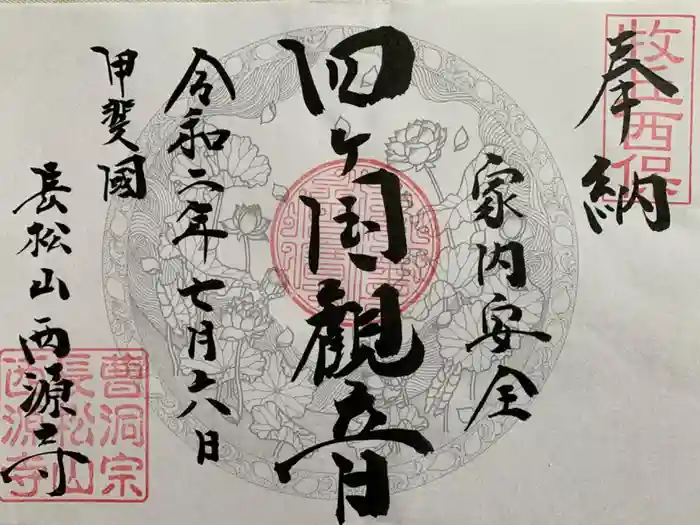 牧丘西保
奉納
家内安全
四ヶ国観音
令和二年七月六日
甲斐國
長松山西源寺
曹洞宗
長松山
西源寺